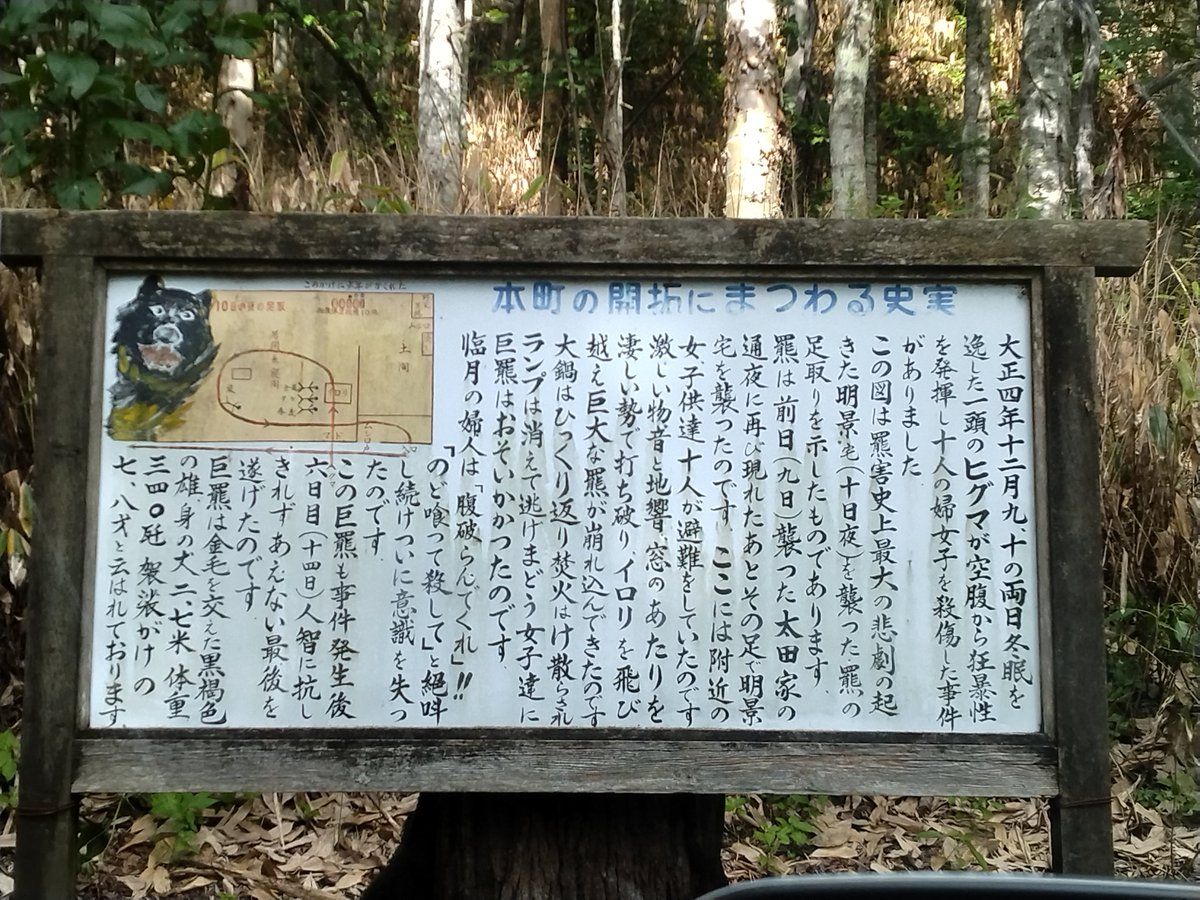 本町の開拓にまつわる史実
大正四年十二月九、十の両日冬眠を
逸した一頭のヒグマが空腹から狂暴性
を発揮し十人の婦女子を殺傷した事件
がありました
この図は羆害史上最大の悲劇の起
きた明景宅(十日夜)を襲った羆の
足取りを示したものであります
羆は前日(九日)襲った太田家の
通夜に再び現れたあとその足で明景
宅を襲ったのです ここには附近の
女子供達十人が避難をしていたのです
激しい物音と地響、窓のあたりを
凄しい勢で打ち破り、イロリを飛び
越え巨大な羆が崩れ込んできたのです
大鍋はひっくり返り焚火はけ散らされ
ランプは消えて逃げまどう女子達に
巨羆はおそいかかったのです
臨月の婦人は「腹破らんでくれ」!!
「のど喰って殺して」と絶叫
し続けついに意識を失っ
たのです
この巨羆も事件発生後
六日目(十四日)人智に抗し
きれず あえない最後を
遂げたのです
巨羆は金毛を交えた黒褐色
の雄身の丈二、七米 体重
三四〇瓩 袈裟がけの
七、八才と云はれております
10日の夜の足取
土間
居間兼寝間
イロリ
マド